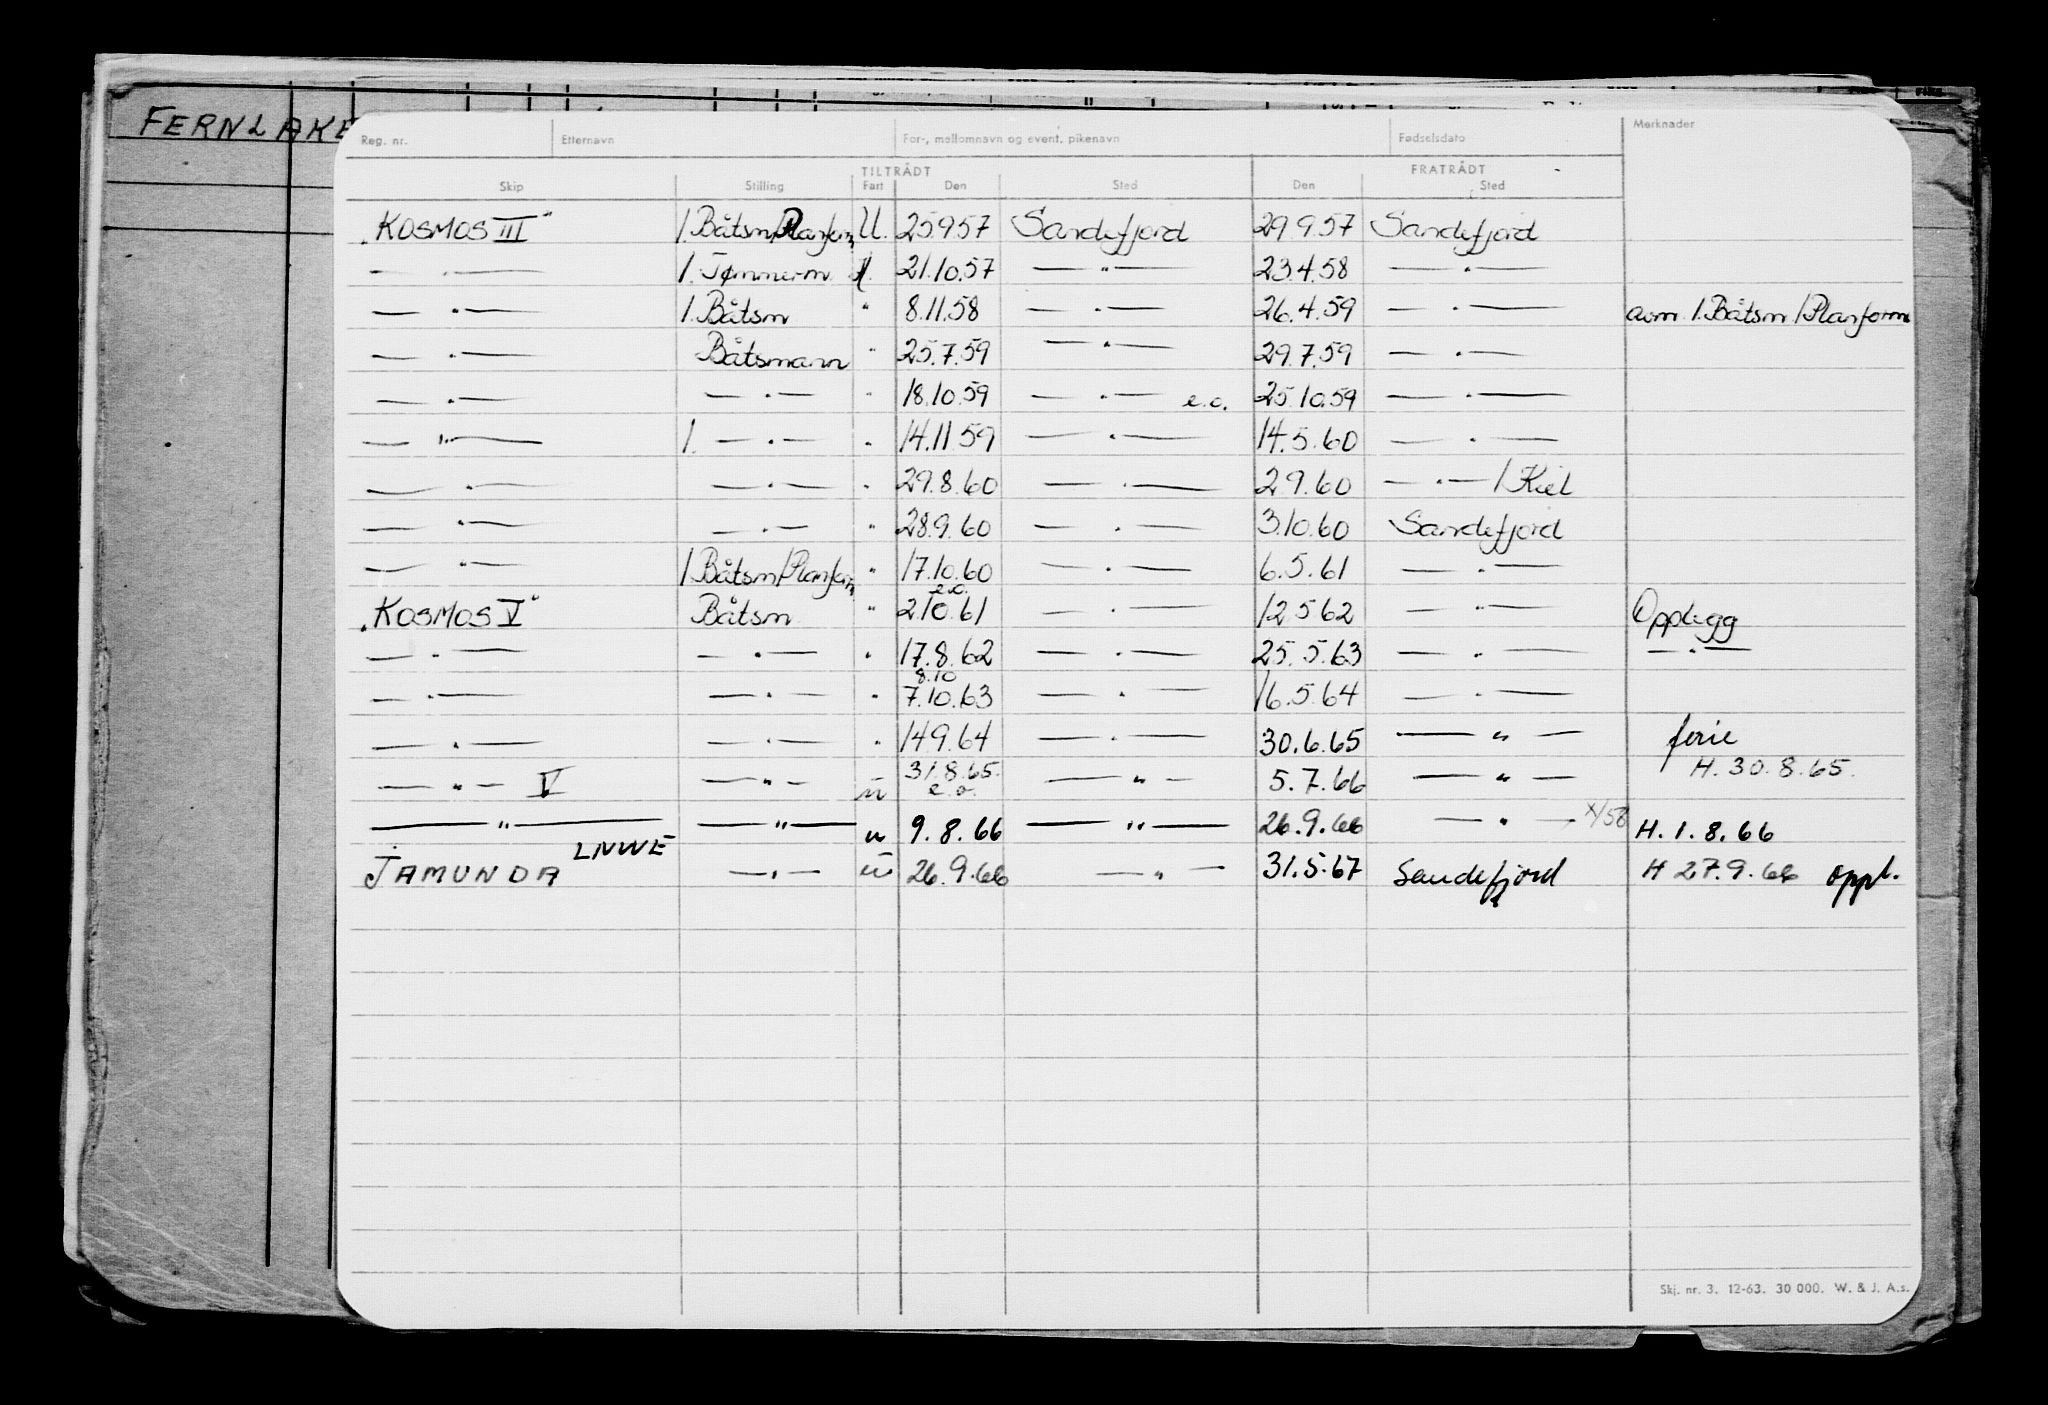 FERNLAKE
Reg. nr. Etternavn For-, mellomnavn og event. pikenavn Fødselsdato Merknader
TILTRÅDT FRATRÅDT
Skip Stilling Fart Den Sted Den Sted
"KOSMOS III" 1. Båtsm/Planform U. 25.9.57 Sandefjord 29.9.57 Sandefjord
— " — 1. Tømmerm. 21.10.57 — " — 23.4.58 — " —
— " — 1. Båtsm " 8.11.58 — " — 26.4.59 — " — avm. 1. Båtsm/Planform
— " — Båtsmann " 25.7.59 — " — 29.7.59 — " —
— " — — " — " 18.10.59 — " — e.o. 25.10.59 — " —
— " — 1. — " — " 14.11.59 — " — 14.5.60 — " —
— " — — " — " 29.8.60 — " — 2.9.60 — " — / Kiel
— " — — " — " 28.9.60 — " — 3.10.60 Sandefjord
— " — 1 Båtsm/Planform " 17.10.60 — " — 6.5.61 — " —
"KOSMOS V" Båtsm " e.o. 2.10.61 — " — 12.5.62 — " — Opplegg
— " — — " — " 17.8.62 — " — 25.5.63 — " — — " —
— " — — " — " 8.10 7.10.63 — " — 16.5.64 — " —
— " — — " — " 14.9.64 — " — 30.6.65 — " — ferie
— " — V — " — u 31.8.65. e.o. — " — 5.7.66 — " — H. 30.8.65.
— " — — " — u 9.8.66 — " — 26.9.66 — " — x/58 H. 1.8.66
JAMUNDA LINWE — " — u 26.9.66 — " — 31.5.67 Sandefjord H 27.9.66 oppl.
Skj. nr. 3. 12-63. 30 000. W. & J. A.s.